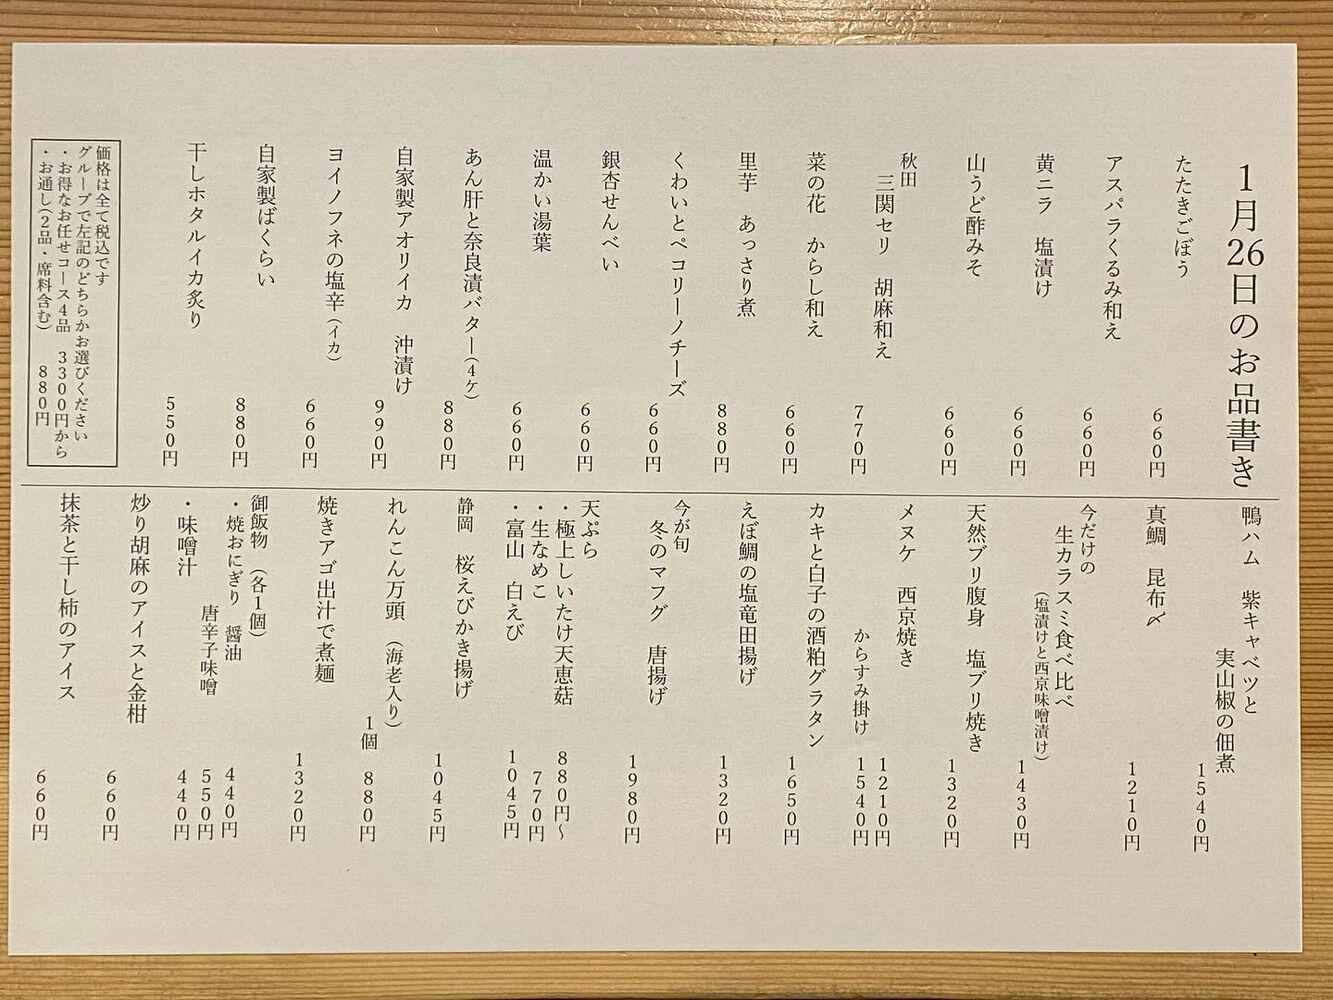 1月26日のお品書き
たたきごぼう 660円
アスパラくるみ和え 660円
黄ニラ 塩漬け 660円
山うど酢みそ 660円
秋田
三関セリ 胡麻和え 770円
菜の花 からし和え 660円
里芋 あっさり煮 880円
くわいとペコリーノチーズ 660円
銀杏せんべい 660円
温かい湯葉 660円
あん肝と奈良漬バター(4ケ) 880円
自家製アオリイカ 沖漬け 990円
ヨイノフネの塩辛(イカ) 660円
自家製ばくらい 880円
干しホタルイカ炙り 550円
価格は全て税込です
グループで左記のどちらかお選びください
・お得なお任せコース4品 3300円から
・お通し(2品・席料含む) 880円
鴨ハム 紫キャベツと
実山椒の佃煮 1540円
真鯛 昆布〆 1210円
今だけの
生カラスミ食べ比べ
(塩漬けと西京味噌漬け) 1430円
天然ブリ腹身 塩ブリ焼き 1320円
メヌケ 西京焼き 1210円
からすみ掛け 1540円
カキと白子の酒粕グラタン 1650円
えぼ鯛の塩竜田揚げ 1320円
今が旬
冬のマフグ 唐揚げ 1980円
天ぷら
・極上しいたけ天恵菇 880円〜
・生なめこ 770円
・富山 白えび 1045円
静岡 桜えびかき揚げ 1045円
れんこん万頭 (海老入り) 1個 880円
焼きアゴ出汁で煮麺 1320円
御飯物 (各1個)
・焼おにぎり 醤油 440円
唐辛子味噌 550円
・味噌汁 440円
炒り胡麻のアイスと金柑 660円
抹茶と干し柿のアイス 660円